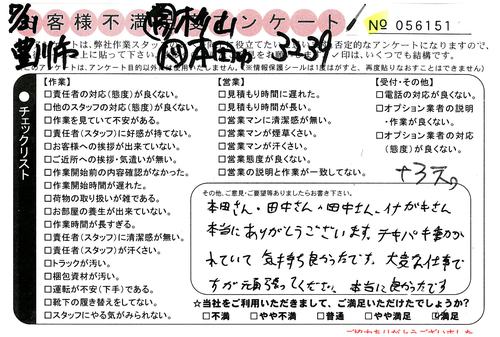 7/31
お客様不満足アンケート
№ 056151
豊川市
33-39
【作業】
□責任者の対応(態度)が良くない。
□他のスタッフの対応(態度)が良くない。
□作業を見ていて不安がある。
□責任者(スタッフ)に好感が持てない。
□お客様への挨拶が出来ていない。
□ご近所への挨拶・気遣いが無い。
□作業開始前の内容確認がなかった。
□作業開始時間が遅れた。
□荷物の取り扱いが雑である。
□お部屋の養生が出来ていない。
□作業時間が長すぎる。
□責任者(スタッフ)に清潔感が無い。
□責任者(スタッフ)が汗くさい。
□トラックが汚い。
□梱包資材が汚い。
□運転が不安(下手)である。
□靴下の履き替えをしてない。
□スタッフにやる気がみられない。
●チェックリスト
【営業】
□見積もり時間に遅れた。
□見積もり時間が長い。
□営業マンに清潔感が無い。
□営業マンが煙草くさい。
□営業マンが汗くさい。
□営業態度が良くない。
□営業の説明と作業が一致してない。
【受付・その他】
□電話の対応が良くない。
□オプション業者の説明
・作業が良くない。
□オプション業者の対応
(態度)が良くない。
その他、ご意見・ご要望等ありましたらお書き下さい。
本田さん・田中さん・田中さん・イナガキさん
本当にありがとうございます。テキパキ動か
れていて気持ち良かったです。大変な仕事で
すが頑張ってください。本当に良かったです
☆当社をご利用いただきまして、ご満足いただけたでしょうか?
□不満 □やや不満 □普通 □やや満足 ☑満足
ご協力ありがとうございました